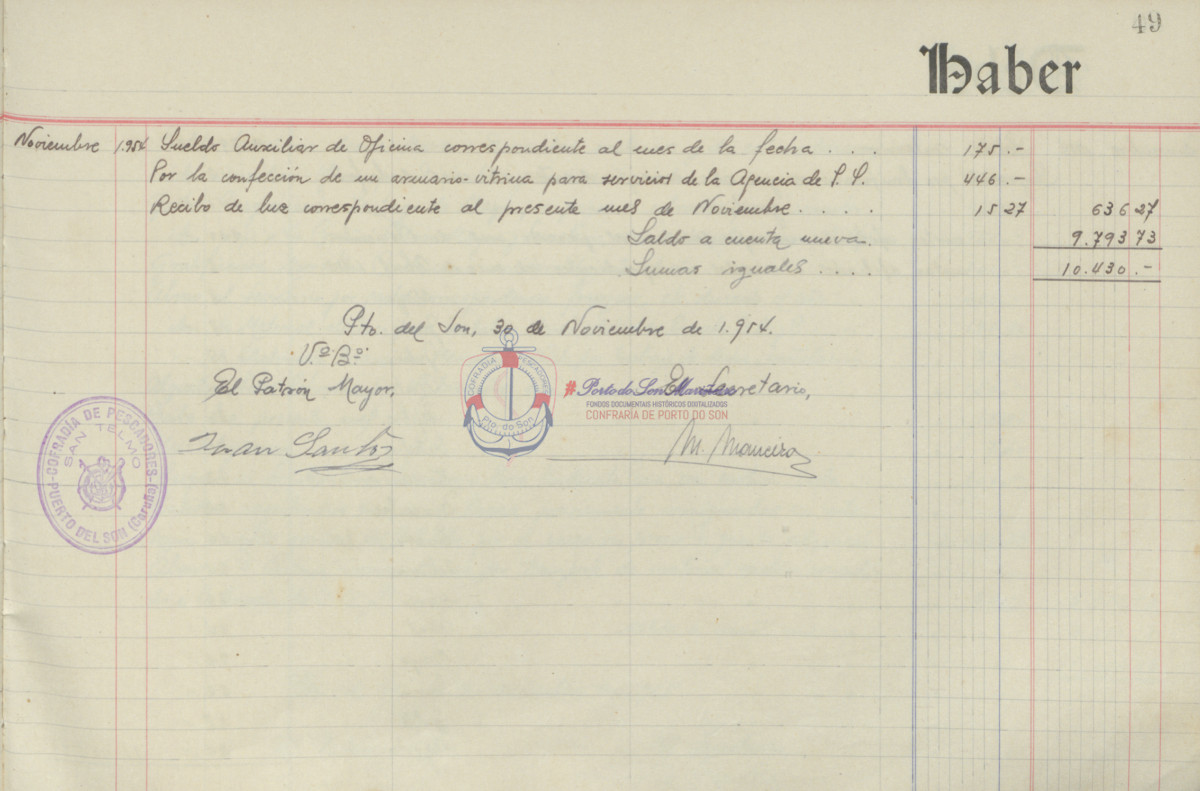 49
Haber
Noviembre 1.954 Sueldo Auxiliar de Oficina correspondiente al mes de la fecha . . . 175.-
Por la confección de un armario-vitrina para servicios de la Agencia de P. P. 446.-
Recibo de luz correspondiente al presente mes de Noviembre. . . . . 15 27 636 27
Saldo a cuenta nueva. 9.793 73
Sumas iguales . . . . 10.430.-
Pto. del Son, 30 de Noviembre de 1.954.
V.º B.º
El Patrón Mayor,
El Secretario,
Juan Santos
M. Maneiro
COFRADÍA DE PESCADORES
SAN TELMO
PUERTO DEL SON (Coruña)
COFRADIA PESCADORES
Pto. do Son
#Porto do Son
FONDOS DOCUMENTAIS HISTÓRICOS DIXITALIZADOS
CONFRARÍA DE PORTO DO SON